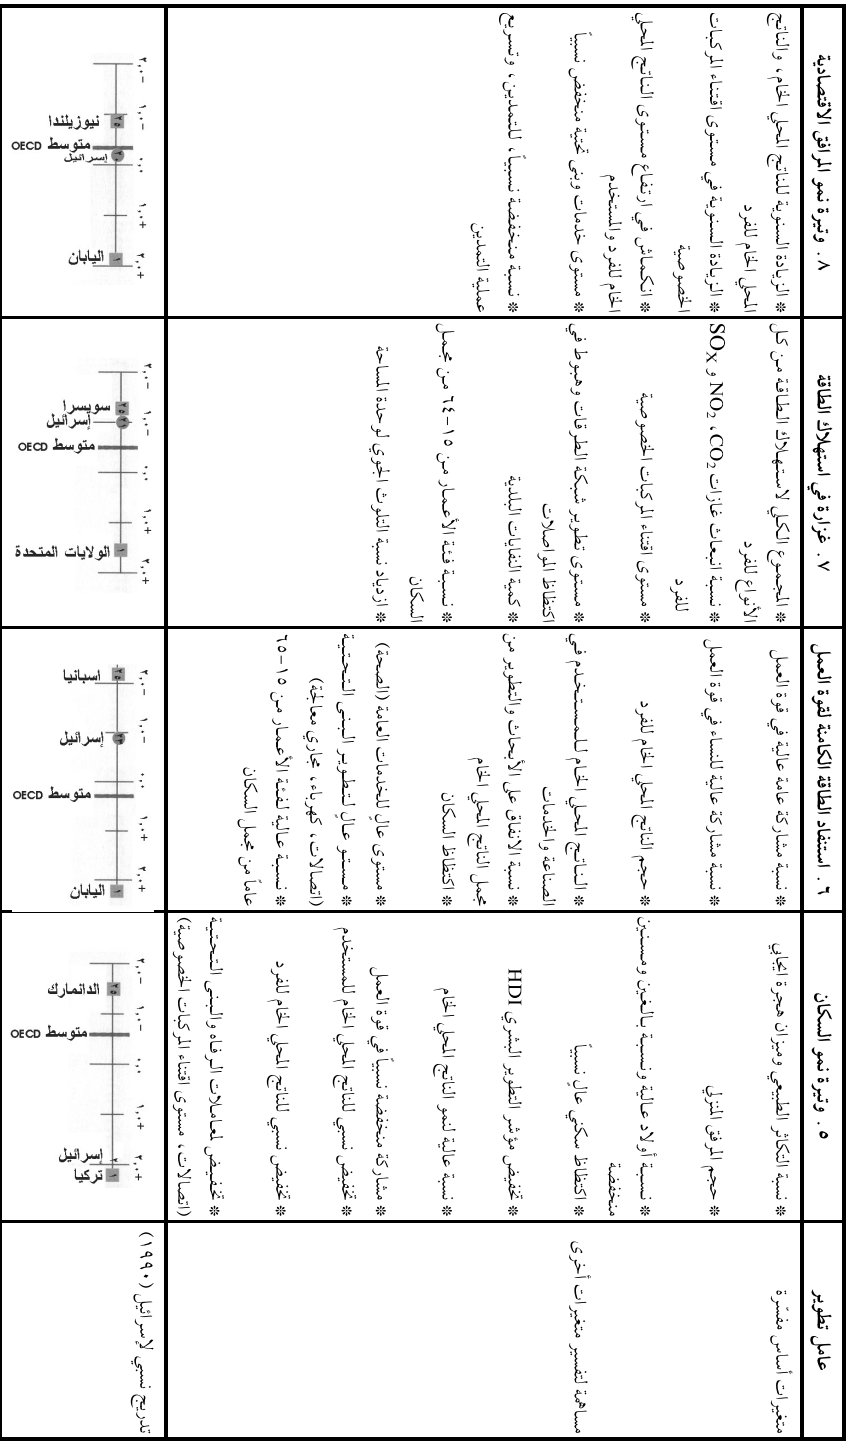 عامل تطوير
متغيرات أساس مفسّرة
مساهمة لتفسير متغيرات أخرى
تدريج نسبي لإسرائيل (١٩٩٠)
٥. وتيرة نمو السكان
* نسبة التكاثر الطبيعي وميزان هجرة إيجابي
* حجم المرفق المنزلي
* نسبة أولاد عالية ونسبة بالغين ومسنين
منخفضة
* اكتظاظ سكني عالٍ نسبياً
* تخفيض مؤشر التطوير البشري HDI
* نسبة عالية لنمو الناتج المحلي الخام
* مشاركة منخفضة نسبياً في قوة العمل
* تخفيض نسبي للناتج المحلي الخام للمستخدم
* تخفيض نسبي للناتج المحلي الخام للفرد
* تخفيض لمعاملات الرفاه والبنى التحتية
(اتصالات، مستوى اقتناء المركبات الخصوصية)
٢,٠-
١,٠-
٠,٠
١,٠+
٢,٠+
٢٥
الدانمارك
متوسط OECD
٢
إسرائيل
١
تركيا
٦. استنفاد الطاقة الكامنة لقوة العمل
* نسبة مشاركة عامة عالية في قوة العمل
* نسبة مشاركة عالية للنساء في قوة العمل
* حجم الناتج المحلي الخام للفرد
* الناتج المحلي الخام للمستخدم في
الصناعة والخدمات
* نسبة الانفاق على الأبحاث والتطوير من
مجمل الناتج المحلي الخام
* اكتظاظ السكان
* مستوى عالٍ للخدمات العامة (الصحة)
* مستو عالٍ لتطوير البنى التحتية
(اتصالات، كهرباء، مجاري معالجة)
* نسبة عالية لفئة الأعمار من ١٥-٦٥
عاماً من مجمل السكان
٢,٠-
١,٠-
٠,٠
١,٠+
٢,٠+
٢٥
اسبانيا
إسرائيل
متوسط OECD
١
اليابان
٧. غزارة في استهلاك الطاقة
* المجموع الكلي لاستهلاك الطاقة من كل
الأنواع للفرد
* نسبة انبعاث غازات CO₂، NO₂ و SOx
للفرد
* مستوى اقتناء المركبات الخصوصية
* مستوى تطوير شبكة الطرقات وهبوط في
اكتظاظ المواصلات
* كمية النفايات البلدية
* نسبة فئة الأعمار من ١٥-٦٤ من مجمل
السكان
* ازدياد نسبة التلوث الجوي لوحدة المساحة
٢,٠-
١,٠-
٠,٠
١,٠+
٢,٠+
٢٥
سويسرا
إسرائيل
متوسط OECD
١
الولايات المتحدة
٨. وتيرة نمو المرافق الاقتصادية
* الزيادة السنوية للناتج المحلي الخام، والناتج
المحلي الخام للفرد
* الزيادة السنوية في مستوى اقتناء المركبات
الخصوصية
* انكماش في ارتفاع مستوى الناتج المحلي
الخام للفرد والمستخدم
* مستوى خدمات وبنى تحتية منخفض نسبياً
* نسبة منخفضة نسبياً، للتمدين، وتسريع
عملية التمدين
٢,٠-
١,٠-
٠,٠
١,٠+
٢,٠+
٢٥
نيوزيلندا
متوسط OECD
إسرائيل
١
اليابان